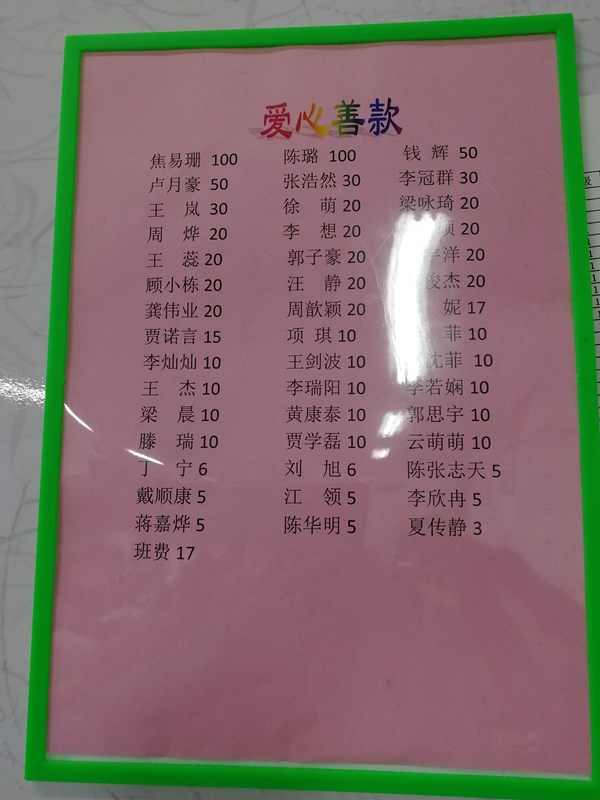 爱心善款
焦易珊 100 陈璐 100 钱 辉 50
卢月豪 50 张浩然 30 李冠群 30
王 岚 30 徐 萌 20 梁咏琦 20
周 烨 20 李 想 20 硕 20
王 蕊 20 郭子豪 20 洋 20
顾小栋 20 汪 静 20 俊杰 20
龚伟业 20 周歆颖 20 妮 17
贾诺言 15 项 琪 10 菲 10
李灿灿 10 王剑波 10 沈菲 10
王 杰 10 李瑞阳 10 李若娴 10
梁 晨 10 黄康泰 10 郭思宇 10
滕 瑞 10 贾学磊 10 云萌萌 10
丁 宁 6 刘 旭 6 陈张志天 5
戴顺康 5 江 领 5 李欣冉 5
蒋嘉烨 5 陈华明 5 夏传静 3
班费 17